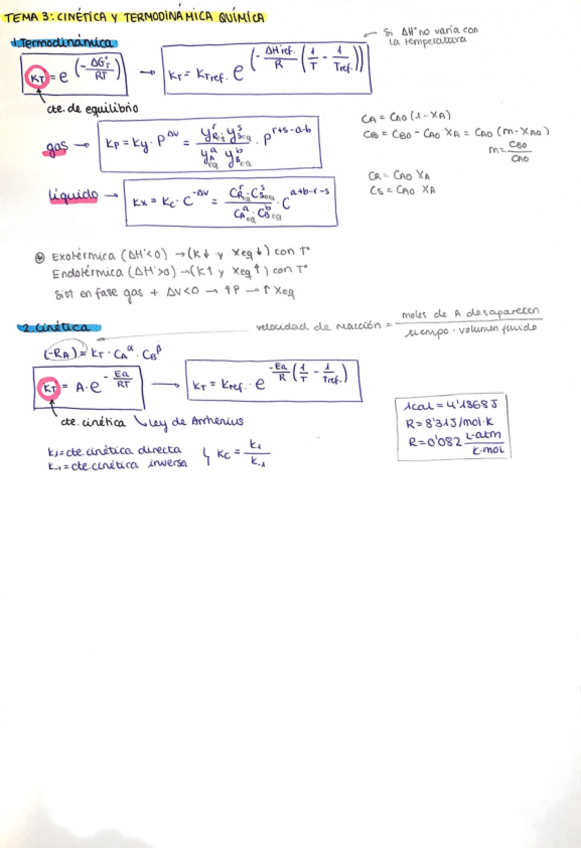 TEMA 3: CINÉTICA Y TERMODINÁMICA QUÍMICA
1. Termodinámica
Si ΔH° no varia con la temperatura
K_T = e^(-ΔG°_T/RT) → K_T = K_Tref. e^(-ΔH ref./R (1/T - 1/Tref.))
cte. de equilibrio
gas → Kp = Ky · P^Δν = (y_R^r eq y_S^s eq)/(y_A^a eq y_B^b eq) · P^(r+s-a-b)
líquido → Kx = Kc · C^-Δν = (C_R^r eq · C_S^s eq)/(C_A^a eq · C_B^b eq) · C^(a+b-r-s)
C_A = C_A0 (1 - X_A)
C_B = C_B0 - C_A0 X_A = C_A0 (m - X_A0)
m = C_B0/C_A0
C_R = C_A0 X_A
C_S = C_A0 X_A
⊛ Exotérmica (ΔH°<0) → (K↓ y Xeq↓) con T°
Endotérmica (ΔH°>0) → (K↑ y Xeq↑) con T°
Sist en fase gas + Δν<0 → ↑P → ↑Xeq
2. Cinética
velocidad de reacción = moles de A desaparecen / tiempo · volumen fluido
(-R_A) = K_T · C_A^α · C_B^β
K_T = A · e^(-Ea/RT) → K_T = Kref. · e^(-Ea/R (1/T - 1/Tref.))
cte. cinética ↳ Ley de Arrhenius
K₁ = cte. cinética directa
K₋₁ = cte. cinética inversa } Kc = K₁/K₋₁
1cal = 4'1868J
R = 8'31J/mol·K
R = 0'082 L·atm/K·mol